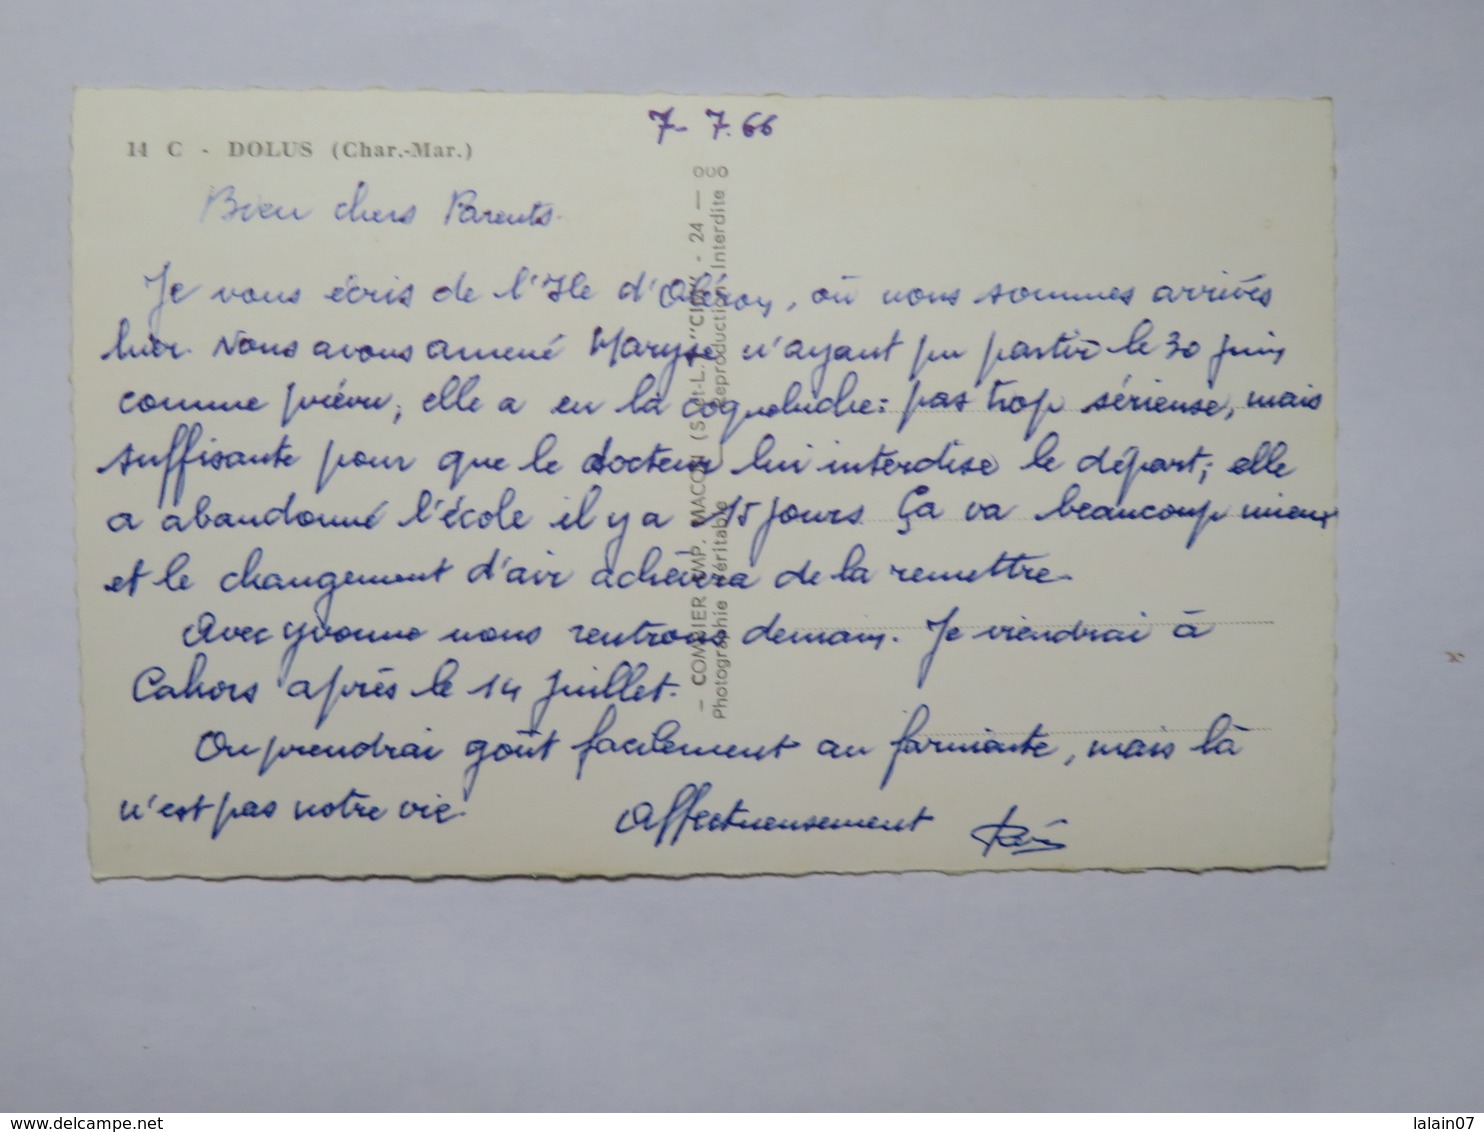 7-7.66
14 C - DOLUS (Char.-Mar.)
Bien chers Parents.
Je vous écris de l'Ile d'Oléron, où nous sommes arrivés
hier. Nous avons amené Maryse n'ayant pu partir le 30 juin
comme prévu, elle a eu la coqueluche: pas trop sérieuse, mais
suffisante pour que le docteur lui interdise le départ; elle
a abandonné l'école il y a 15 jours. Ça va beaucoup mieux
et le changement d'air achèvera de la remettre.
Avec Yvonne nous rentrons demain. Je viendrai à
Cahors après le 14 Juillet.
On prendrai goût facilement au farniente, mais là
n'est pas notre vie.
Affectueusement
— COMBIER IMP. MACON (S.-et-L.) "CIM" - 24 — 000
Photographie Véritable — Reproduction Interdite
www.delcampe.net
lalain07